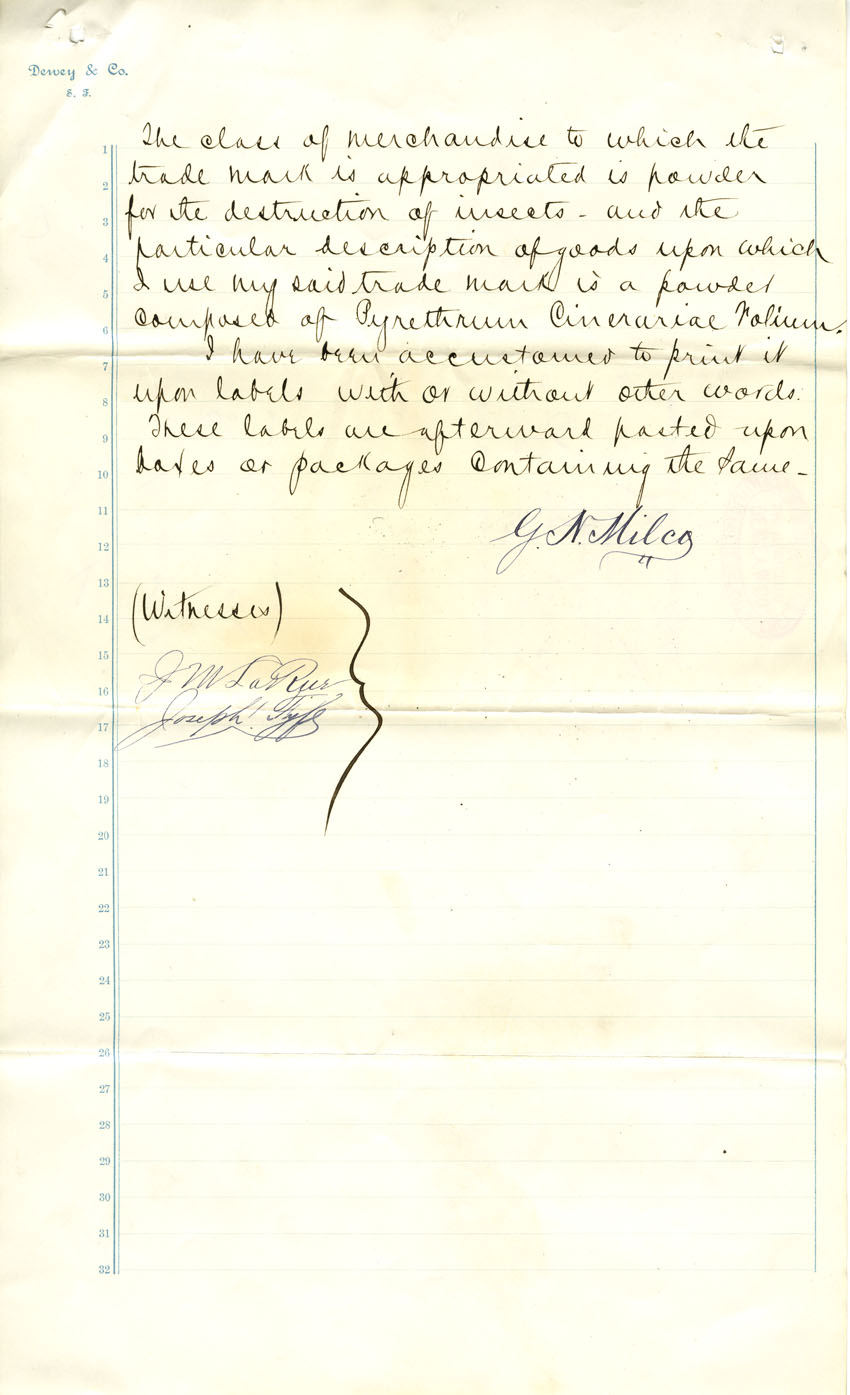 Dewey & Co.
S. F.
1 The class of merchandise to which the
2 trade mark is appropriated is powder
3 for the destruction of insects - and the
4 particular description of goods upon which
5 I use my said trade mark is a powder
6 composed of Pyrethrum Cinerariae Folium.
7 I have been accustomed to print it
8 upon labels with or without other words.
9 These labels are afterward pasted upon
10 boxes or packages containing the same -
11
12 G. N. Milco
13
14 (Witnesses)
15
16 J M LaRue
17 Joseph
18
19
20
21
22
23
24
25
26
27
28
29
30
31
32